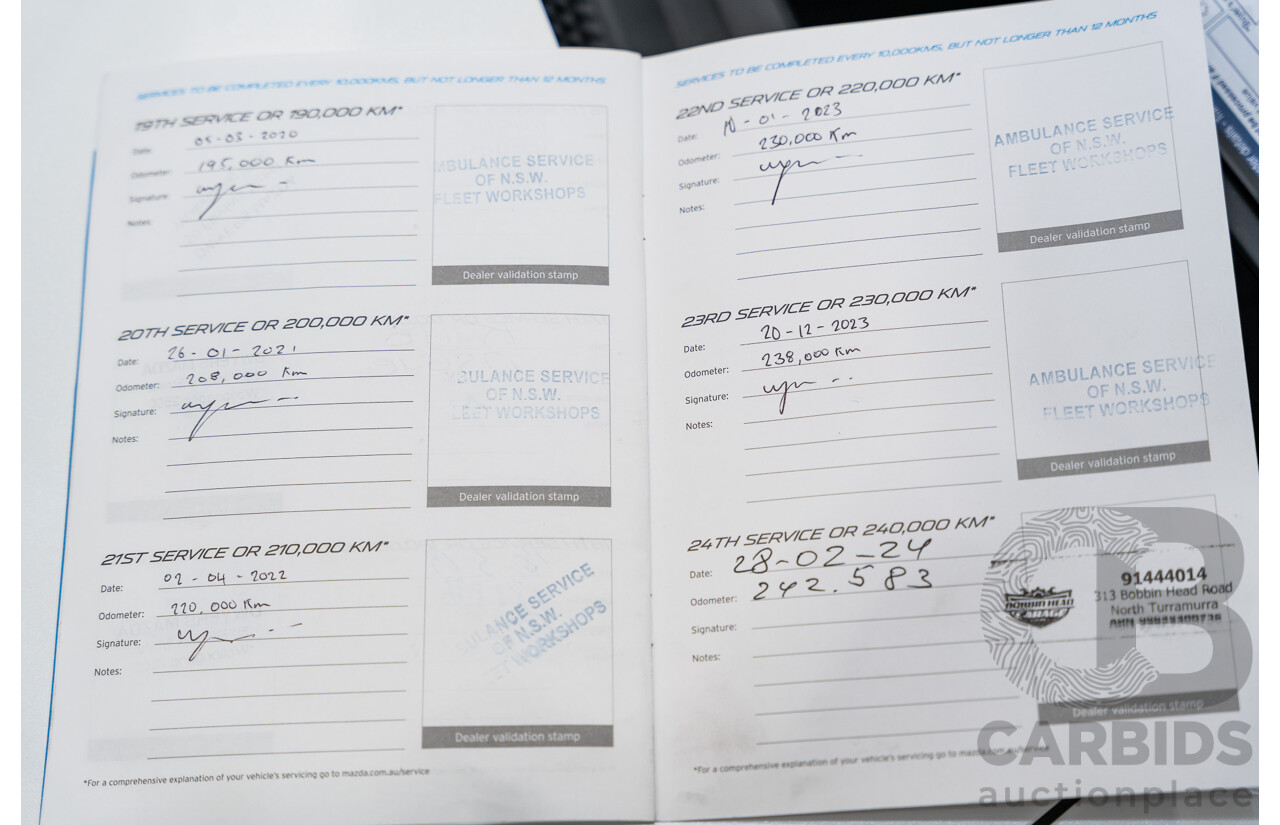 SERVICES TO BE COMPLETED EVERY 10,000KMS, BUT NOT LONGER THAN 12 MONTHS
19TH SERVICE OR 190,000 KM*
Date: 05-03-2020
Odometer: 195,000 Km
Signature:
Notes:
MBULANCE SERVICE
OF N.S.W.
FLEET WORKSHOPS
Dealer validation stamp
20TH SERVICE OR 200,000 KM*
Date: 26-01-2021
Odometer: 208,000 Km
Signature:
Notes:
BULANCE SERVICE
OF N.S.W.
LEET WORKSHOPS
Dealer validation stamp
21ST SERVICE OR 210,000 KM*
Date: 02-04-2022
Odometer: 220,000 Km
Signature:
Notes:
ULANCE SERVICE
OF N.S.W.
ET WORKSHOPS
Dealer validation stamp
*For a comprehensive explanation of your vehicle's servicing go to mazda.com.au/service
SERVICES TO BE COMPLETED EVERY 10,000KMS, BUT NOT LONGER THAN 12 MONTHS
22ND SERVICE OR 220,000 KM*
Date: -01-2023
Odometer: 230,000 Km
Signature:
Notes:
AMBULANCE SERVICE
OF N.S.W.
FLEET WORKSHOPS
Dealer validation stamp
23RD SERVICE OR 230,000 KM*
Date: 20-12-2023
Odometer: 238,000 Km
Signature:
Notes:
AMBULANCE SERVICE
OF N.S.W.
FLEET WORKSHOPS
Dealer validation stamp
24TH SERVICE OR 240,000 KM*
Date: 28-02-24
Odometer: 242.583
Signature:
Notes:
BOBBIN HEAD
GARAGE
91444014
313 Bobbin Head Road
North Turramurra
ABN
Dealer validation stamp
*For a comprehensive explanation of your vehicle's servicing go to mazda.com.au/service
CB
CARBIDS
auctionplace